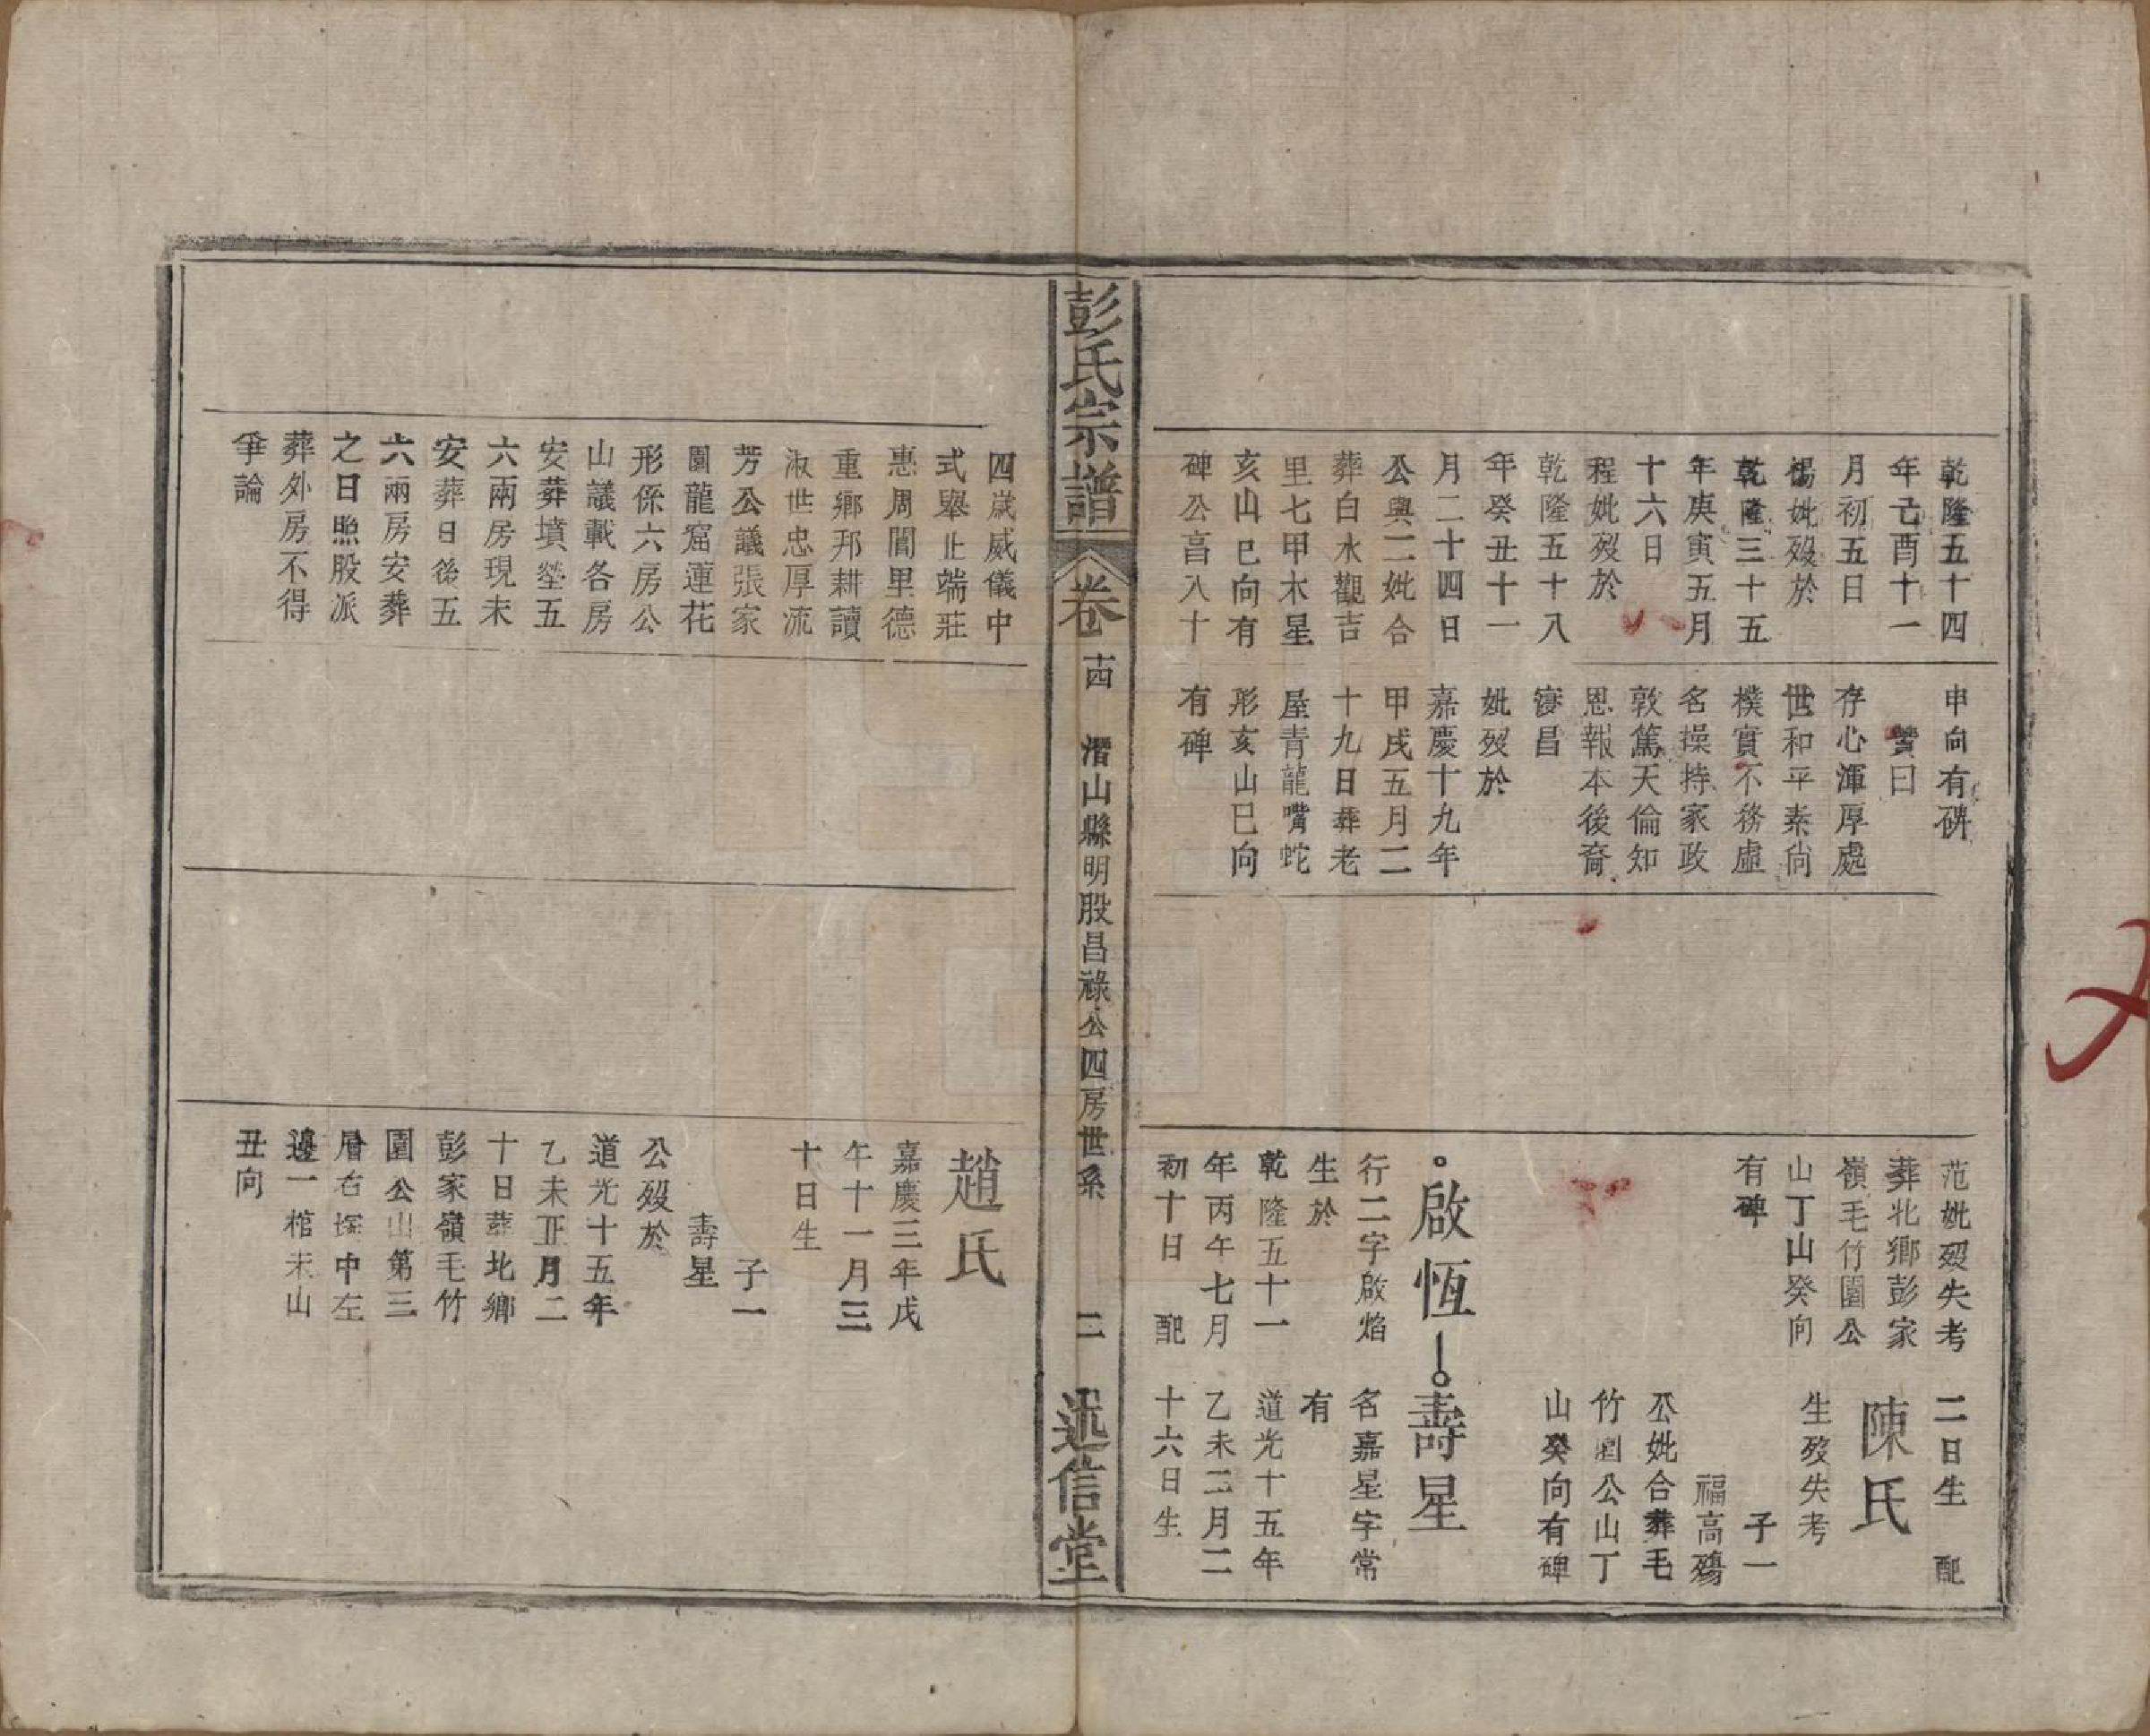 乾隆五十四
年己酉十一
月初五日
楊妣歿於
乾隆三十五
年庚寅五月
十六日
程妣歿於
乾隆五十八
年癸丑十一
月二十四日
公與二妣合
葬白水觀吉
里七甲木星
亥山巳向有
碑公享八十
申向有碑
贊曰
存心渾厚處
世和平素尙
樸實不務虛
名操持家政
敦篤天倫知
恩報本後裔
寖昌
妣歿於
嘉慶十九年
甲戌五月二
十九日葬老
屋青龍嘴蛇
形亥山巳向
有碑
范妣歿失考
葬北鄉彭家
嶺毛竹園公
山丁山癸向
有碑
啟恆
行二字啟焰
生於
乾隆五十一
年丙午七月
初十日 配
二日生 配
陳氏
生歿失考
子一
福高殤
公妣合葬毛
竹園公山丁
山癸向有碑
壽星
名嘉星字常
有
道光十五年
乙未二月二
十六日生
彭氏宗譜
卷十四 潛山縣明股昌祿公四房世系 二 述信堂
四歲威儀中
式舉止端莊
惠周閭里德
重鄉邦耕讀
淑世忠厚流
芳公議張家
園龍窟蓮花
形係六房公
山議載各房
安葬墳塋五
六兩房現未
安葬日後五
六兩房安葬
之日照股派
葬外房不得
爭論
趙氏
嘉慶三年戊
午十一月三
十日生
子一
壽星
公歿於
道光十五年
乙未正月二
十日葬北鄉
彭家嶺毛竹
園公山第三
層右塚中左
邊一棺未山
丑向